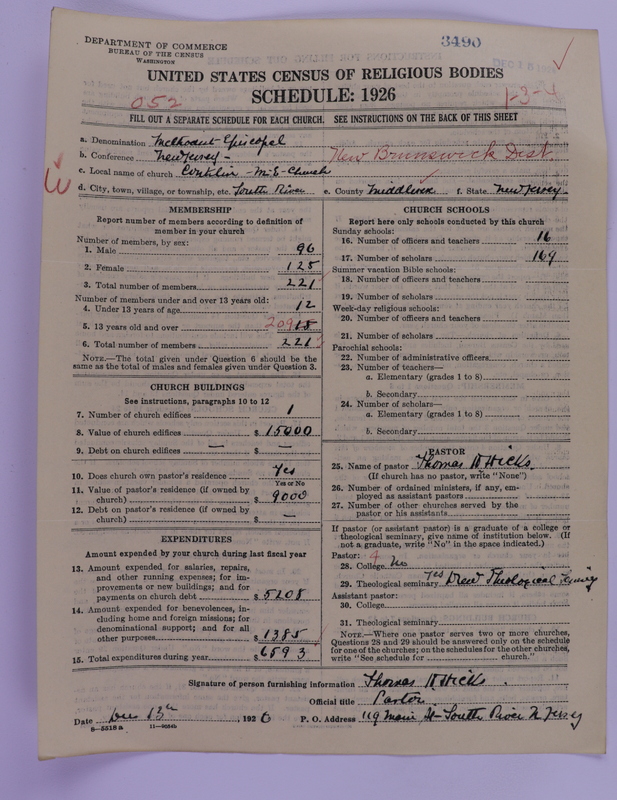 DEPARTMENT OF COMMERCE
BUREAU OF THE CENSUS
WASHINGTON
3490
DEC 15
UNITED STATES CENSUS OF RELIGIOUS BODIES
SCHEDULE: 1926
052
1-3-4
FILL OUT A SEPARATE SCHEDULE FOR EACH CHURCH. SEE INSTRUCTIONS ON THE BACK OF THIS SHEET
a. Denomination Methodist Episcopal
b. Conference New Jersey - New Brunswick Dist
c. Local name of church Conklin - M-E-Church
d. City, town, village, or township, etc. South River e. County Middlesex f. State New Jersey
MEMBERSHIP
Report number of members according to definition of
member in your church
Number of members, by sex:
1. Male 96
2. Female 125
3. Total number of members 221
Number of members under and over 13 years old:
4. Under 13 years of age 12
5. 13 years old and over 209
6. Total number of members 221
NOTE.—The total given under Question 6 should be the
same as the total of males and females given under Question 3.
CHURCH BUILDINGS
See instructions, paragraphs 10 to 12
7. Number of church edifices 1
8. Value of church edifices $ 15000
9. Debt on church edifices — $ —
10. Does church own pastor's residence Yes
Yes or No
11. Value of pastor's residence (if owned by
church) $ 9000
12. Debt on pastor's residence (if owned by
church) $ —
EXPENDITURES
Amount expended by your church during last fiscal year
13. Amount expended for salaries, repairs,
and other running expenses; for im-
provements or new buildings; and for
payments on church debt $ 5208
14. Amount expended for benevolences, in-
cluding home and foreign missions; for
denominational support; and for all
other purposes $ 1385
15. Total expenditures during year $ 6593
CHURCH SCHOOLS
Report here only schools conducted by this church
Sunday schools:
16. Number of officers and teachers 16
17. Number of scholars 169
Summer vacation Bible schools:
18. Number of officers and teachers
19. Number of scholars
Week-day religious schools:
20. Number of officers and teachers
21. Number of scholars
Parochial schools:
22. Number of administrative officers
23. Number of teachers—
a. Elementary (grades 1 to 8)
b. Secondary
24. Number of scholars—
a. Elementary (grades 1 to 8)
b. Secondary
PASTOR
25. Name of pastor Thomas W Hicks
(If church has no pastor, write "None")
26. Number of ordained ministers, if any, em-
ployed as assistant pastors
27. Number of other churches served by the
pastor or his assistants
If pastor (or assistant pastor) is a graduate of a college or
theological seminary, give name of institution below. (If
not a graduate, write "No" in the space indicated.)
Pastor: 4
28. College No
29. Theological seminary yes Drew Theological Seminary
Assistant pastor:
30. College
31. Theological seminary
NOTE.—Where one pastor serves two or more churches,
Questions 28 and 29 should be answered only on the schedule
for one of the churches; on the schedules for the other churches,
write "See schedule for church."
Signature of person furnishing information Thomas W Hicks.
Official title Pastor
Date Dec 13th, 1926 P. O. Address 119 Main St - South River N Jersey
8-5518 a 11-9054b